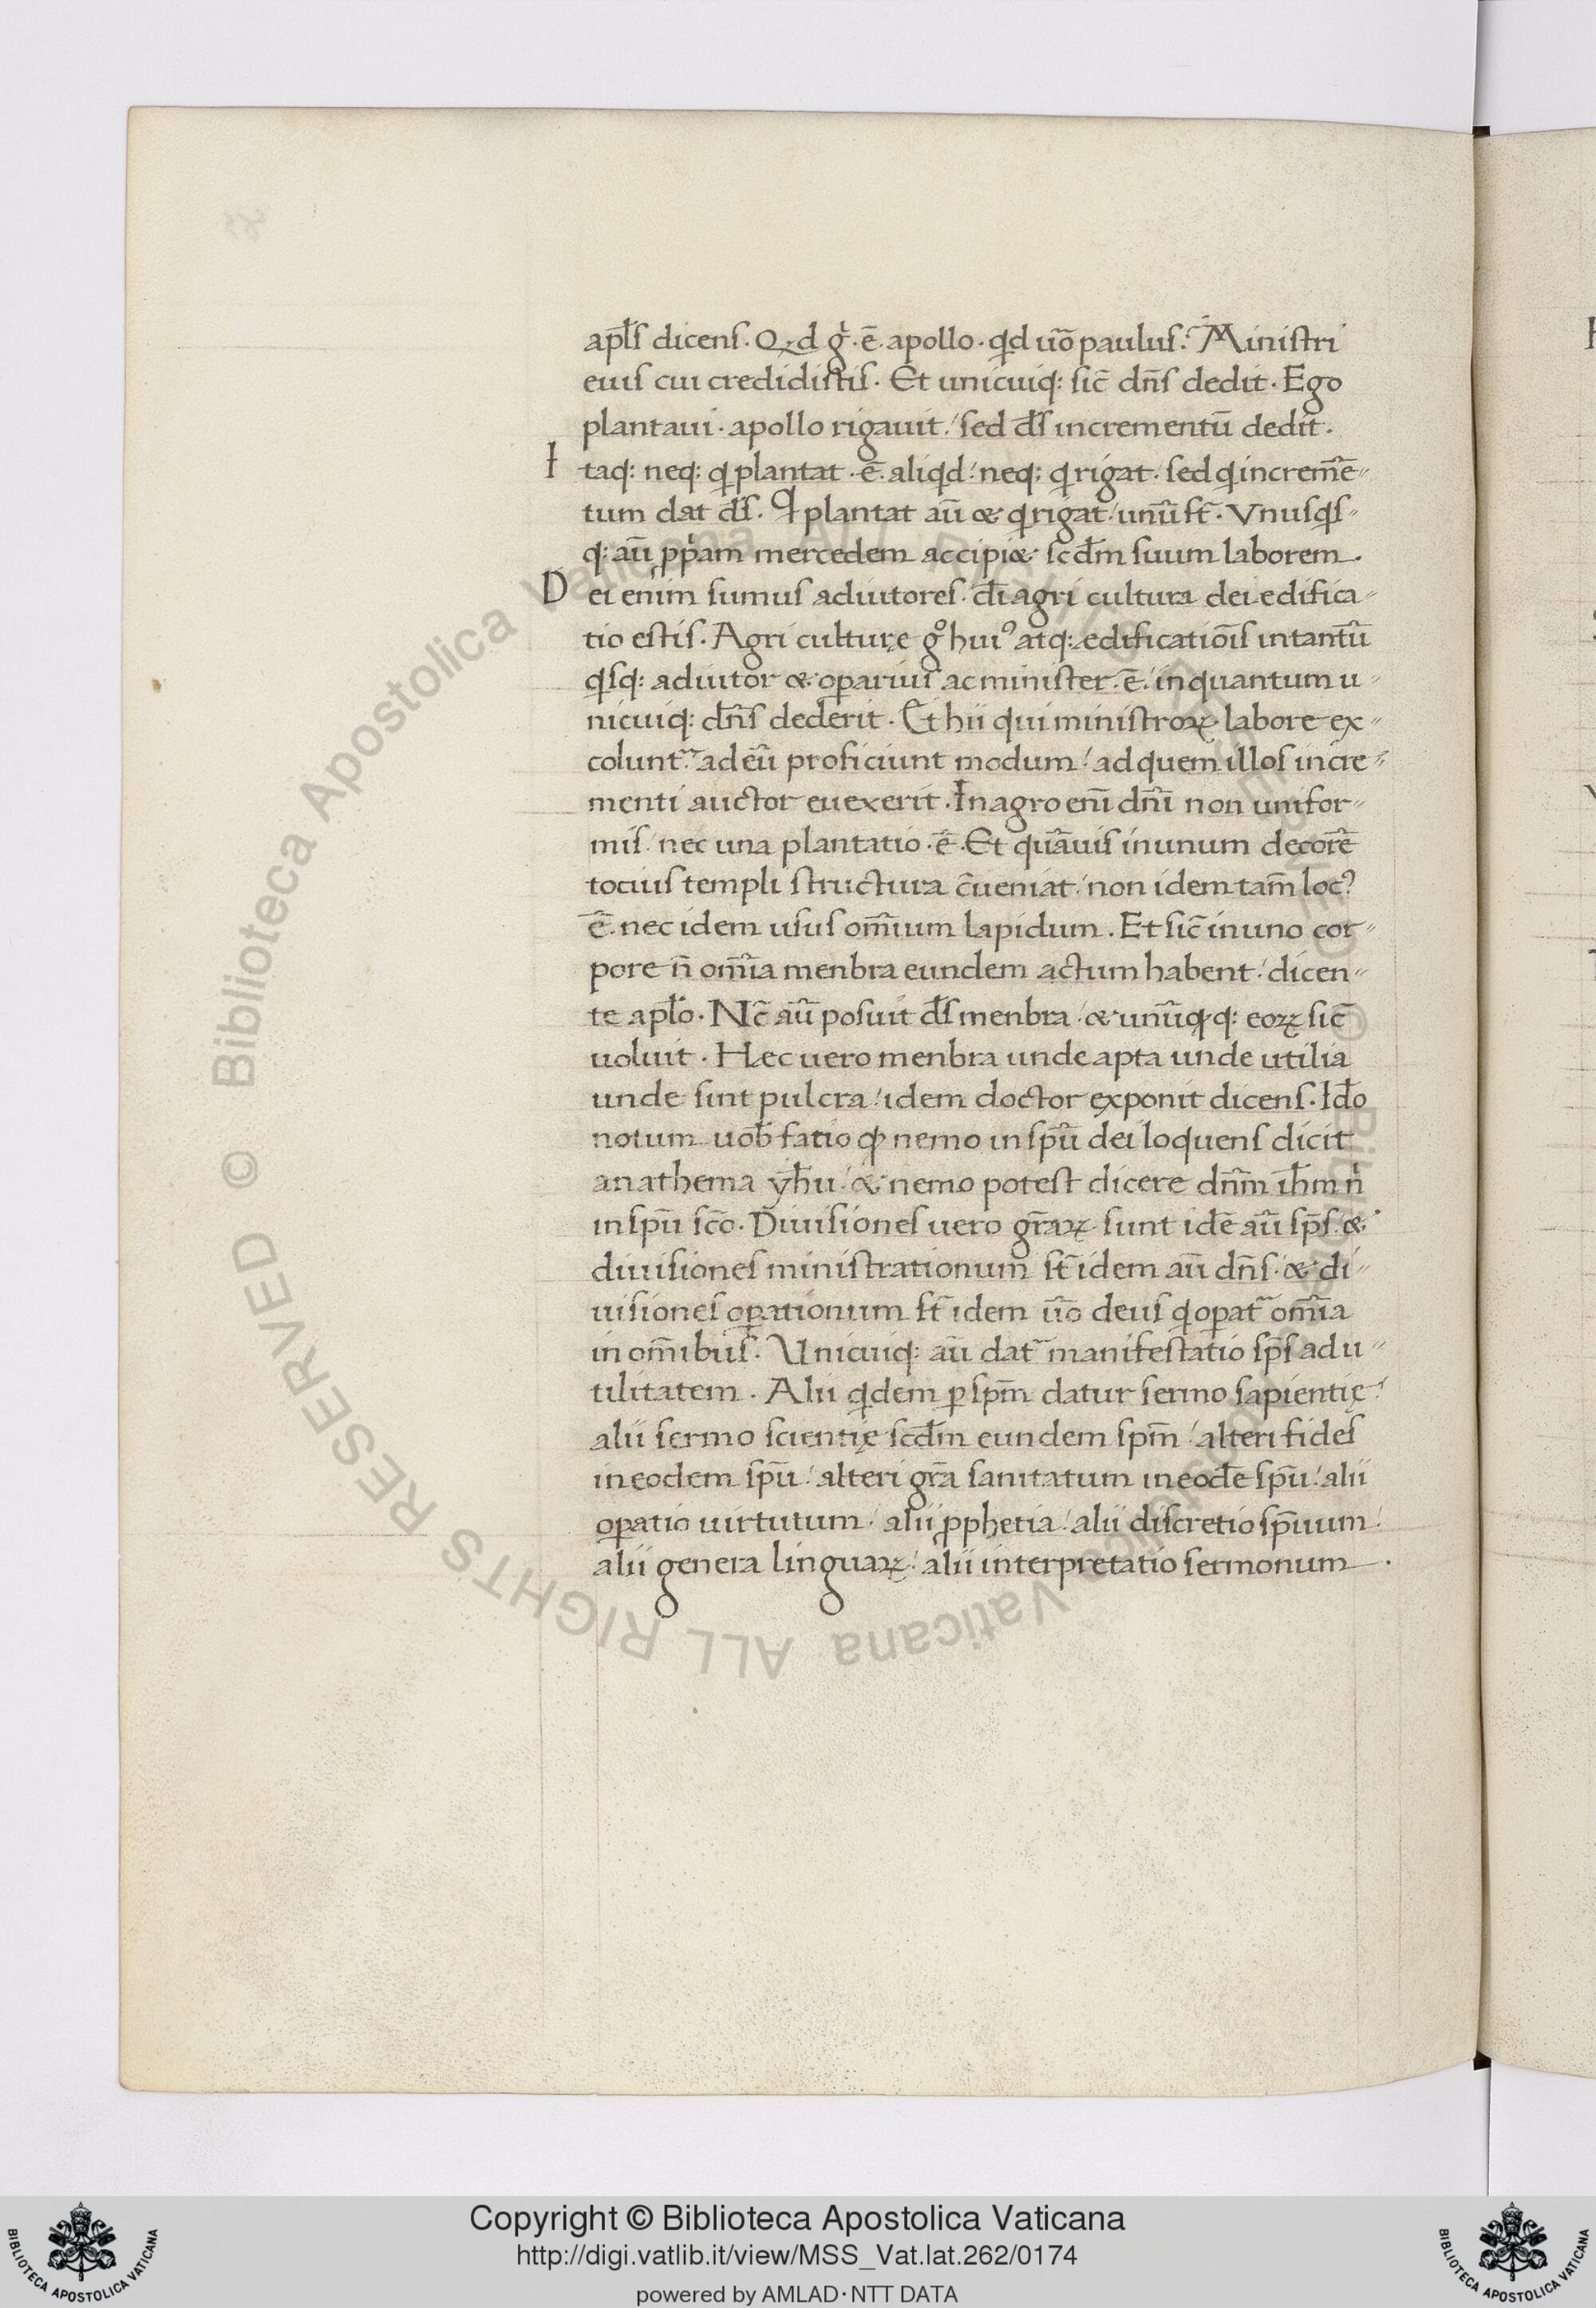 apl̅s dicens. Qd g̊. ē. apollo. qd uō paulus. Ministri
eius cui credidistis. Et unicuiq: sic̄ dn̄s dedit. Ego
plantaui. apollo rigauit. sed d̅s incrementū dedit.
I taq: neq: q plantat. ē. aliqd. neq: q rigat. sed q increm̄e
tum dat d̅s. Q plantat aū & q rigat unū st̄. Vnusqs
q: aū ppam mercedem accipi& scd̄m suum laborem.
D ei enim sumus adiutores. di agri cultura dei edifica
tio estis. Agri culturę g° hui⁹ atq: edificatiōis intantū
qsq: adiutor & operarius ac minister. ē. inquantum u
nicuiq: dn̄s dederit. Et hii qui ministroꝝ labore ex
colunt̃ ad eū proficiunt modum. ad quem illos incre
menti auctor euexerit. In agro eni̅ dn̄i non unifor
mis nec una plantatio. ē. Et quāuis inunum decorē
tocius templi structura c̄ueniat. non idem tam̄ loc⁹
ē. nec idem usus om̄ium lapidum. Et sic̄ inuno cor
pore n̄ om̄ia menbra eundem actum habent. dicen
te apl̅o. Nc̄ aū posuit d̅s menbra. & unūqq: eoꝝ sic̄
uoluit. Hec uero menbra unde apta unde utilia
unde sint pulcra. idem doctor exponit dicens. Id̅o
notum uob̅ fatio ꝙ nemo in spū dei loquens dicit
anathema yh̅u. & nemo potest dicere dn̄m ih̅m n̊
in spū sc̄o. Diuisiones uero gr̄aꝝ sunt idē aū sp̄s. &
diuisiones ministrationum st̄ idem aū dn̄s. & di
uisiones oꝑationum st̄ idem ūo deus q oꝑat̃ om̄ia
in om̄ibus. Unicuiq: aū dat̃ manifestatio sp̄s ad u
tilitatem. Alii qdem ꝑ spm̄ datur sermo sapientię.
alii sermo scientię scd̄m eundem spm̄. alteri fides
in eodem spū. alteri gr̄a sanitatum in eodē spū. alii
oꝑatio uirtutum. alii ꝓphetia. alii discretio sp̄uum.
alii genera linguaꝝ. alii interpretatio sermonum.
© Biblioteca Apostolica Vaticana ALL RIGHTS RESERVED
Copyright © Biblioteca Apostolica Vaticana
http://digi.vatlib.it/view/MSS_Vat.lat.262/0174
powered by AMLAD·NTT DATA
BIBLIOTECA APOSTOLICA VATICANA
BIBLIOTECA APOSTOLICA VATICANA